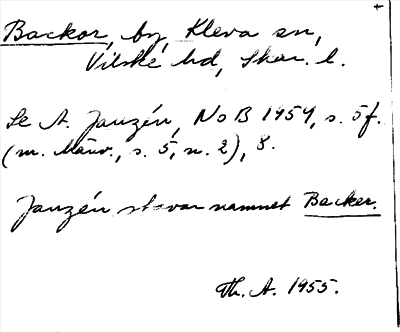 Backor, by, Kleva sn,
Vilske hd, Skar. l.
Se A. Janzén, NoB 1954, s. 5f.
(m. Mänv., s. 5, n. 2), 8.
Janzén stavar namnet Backer.
Th. A. 1955.